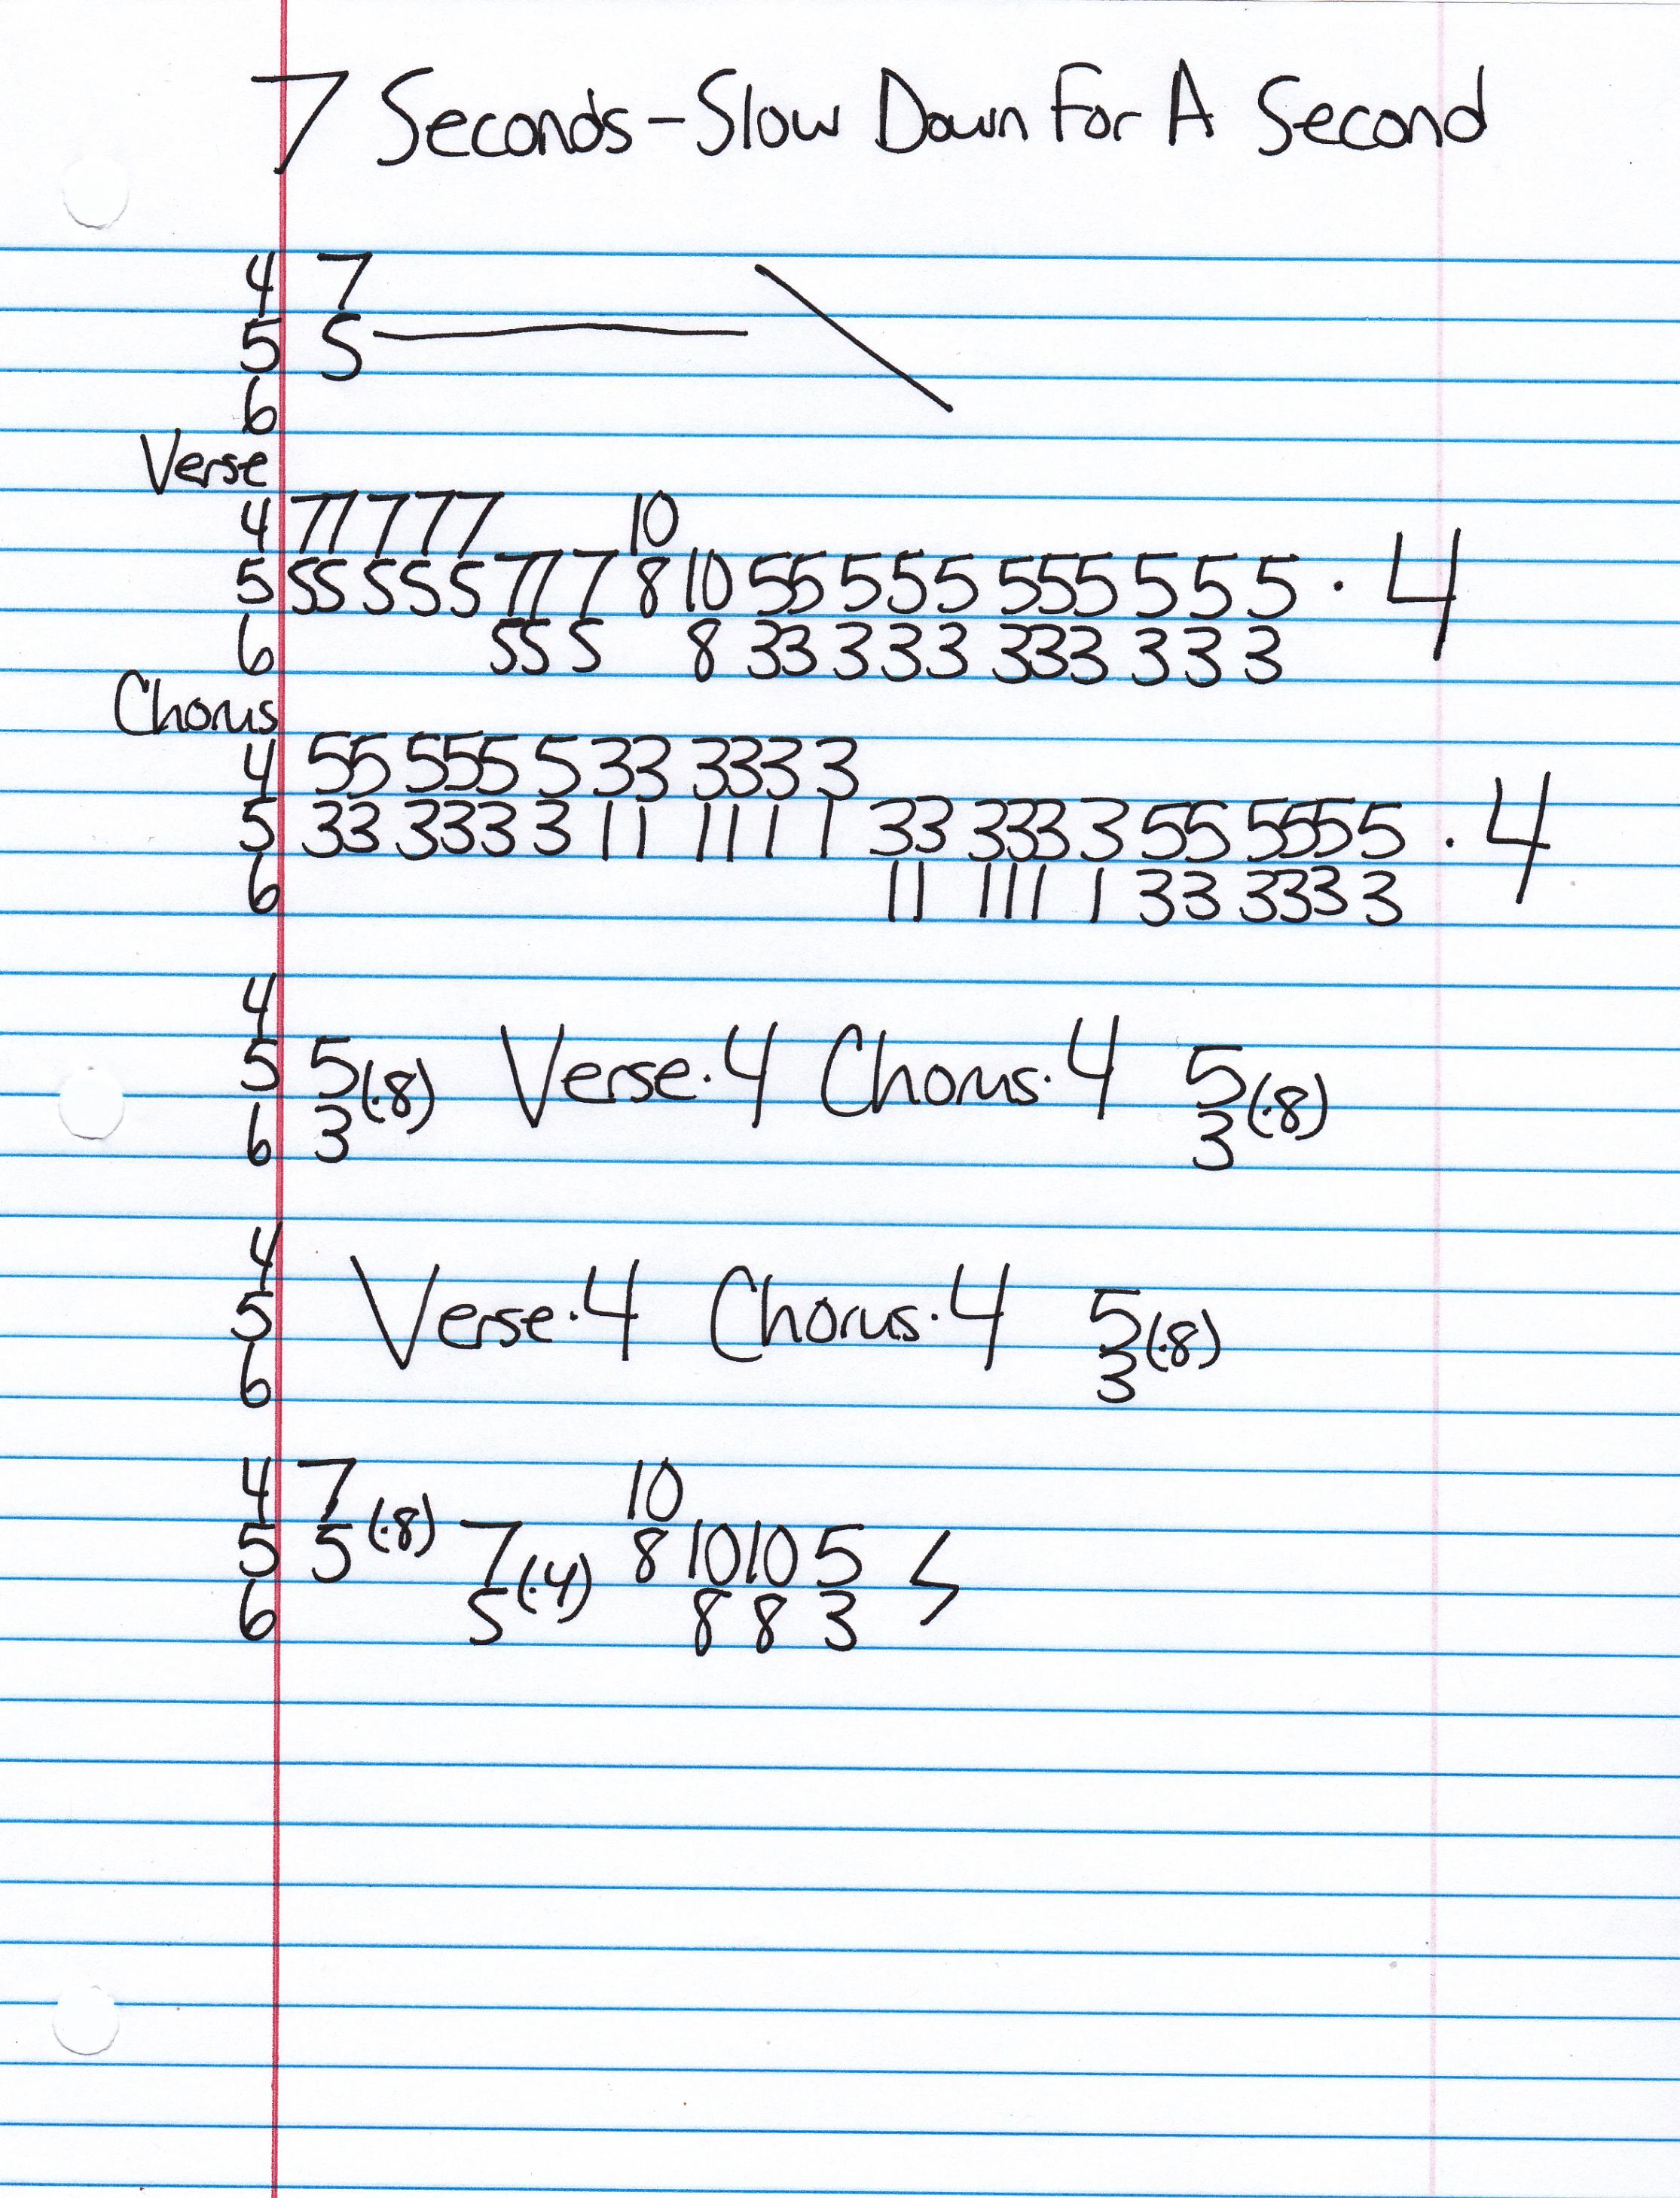 7 Seconds - Slow Down For A Second
4 7
5 5
6
Verse
4 77 777 10
5 55 555 77 7 8 10 55 5 5 5 555 5 5 5 · 4
6 55 5 8 33 3 3 3 333 3 3 3
Chorus
4 55 555 5 33 333 3
5 33 333 3 11 111 1 33 333 3 55 555 5 · 4
6 11 111 1 33 333 3
4
5 5(·8) Verse·4 Chorus·4 5(·8)
6 3 3
4
5 Verse·4 Chorus·4 5(·8)
6 3
4 7 10
5 5(·8) 7(·4) 8 10 10 5
6 5 8 8 3